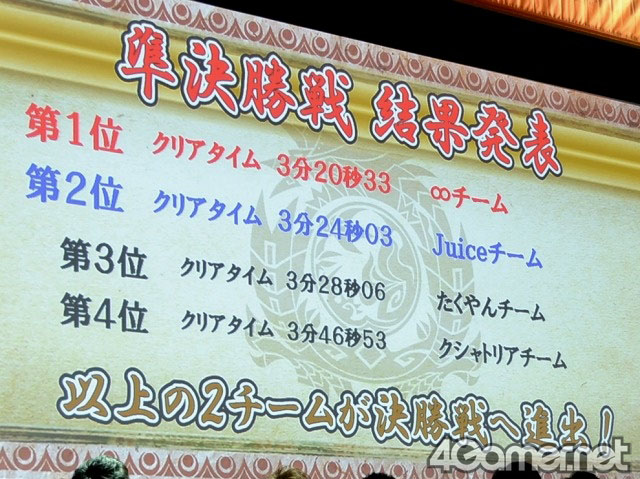 準決勝戦 結果発表
第1位 クリアタイム 3分20秒33 ∞チーム
第2位 クリアタイム 3分24秒03 Juiceチーム
第3位 クリアタイム 3分28秒06 たくやんチーム
第4位 クリアタイム 3分46秒53 クシャトリアチーム
以上の2チームが決勝戦へ進出!
4Gamer.net